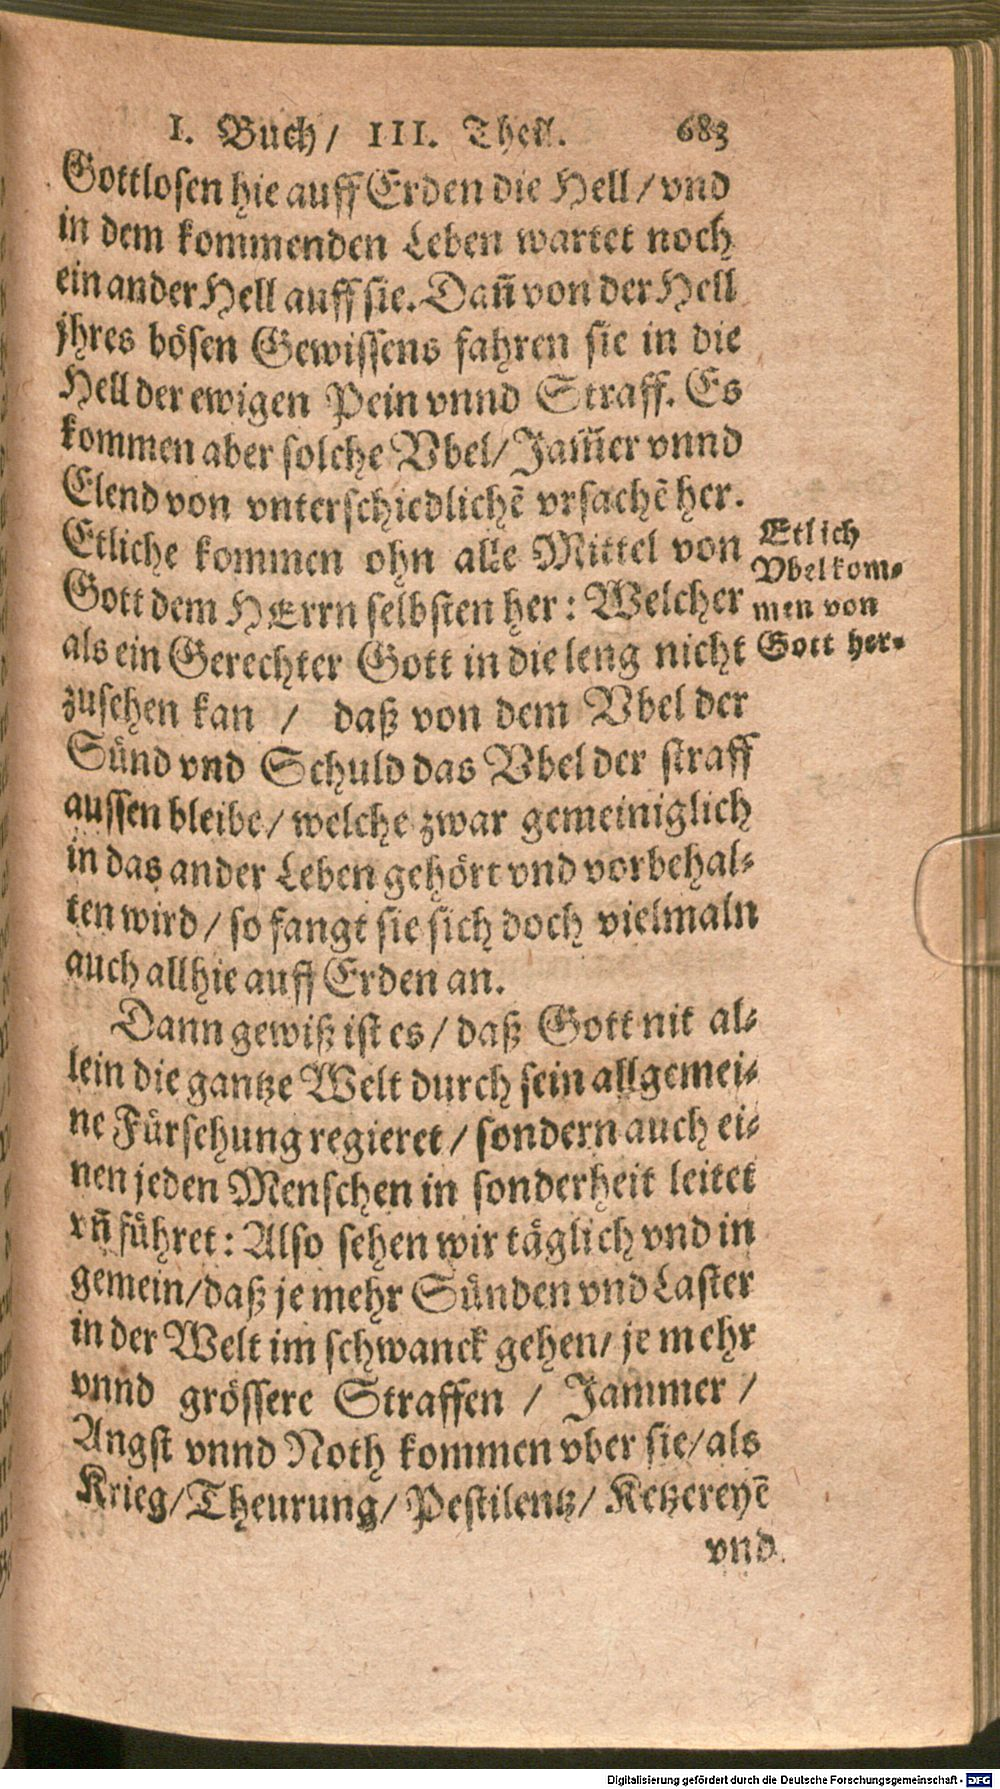 I. Buch/ III. Theil. 683
Gottlosen hie auff Erden die Hell/ vnd
in dem kommenden Leben wartet noch
ein ander Hell auff sie. Dañ von der Hell
jhres bösen Gewissens fahren sie in die
Hell der ewigen Pein vnnd Straff. Es
kommen aber solche Vbel/ Jam̃er vnnd
Elend von vnterschiedlichẽ vrsachẽ her.
Etliche kommen ohn alle Mittel von
Gott dem HErrn selbsten her: Welcher
als ein Gerechter Gott in die leng nicht
zusehen kan / daß von dem Vbel der
Sünd vnd Schuld das Vbel der straff
aussen bleibe/ welche zwar gemeiniglich
in das ander Leben gehört vnd vorbehal-
ten wird/ so fangt sie sich doch vielmaln
auch allhie auff Erden an.
Etlich
Vbel kom-
men von
Gott her-
Dann gewiß ist es/ daß Gott nit al-
lein die gantze Welt durch sein allgemei-
ne Fürsehung regieret/ sondern auch ei-
nen jeden Menschen in sonderheit leitet
vñ führet: Also sehen wir täglich vnd in
gemein/ daß je mehr Sünden vnd Laster
in der Welt im schwanck gehen/ je mehr
vnnd grössere Straffen / Jammer /
Angst vnnd Noth kommen vber sie/ als
Krieg/ Theurung/ Pestilentz/ Ketzereyẽ
vnd
Digitalisierung gefördert durch die Deutsche Forschungsgemeinschaft - DFG